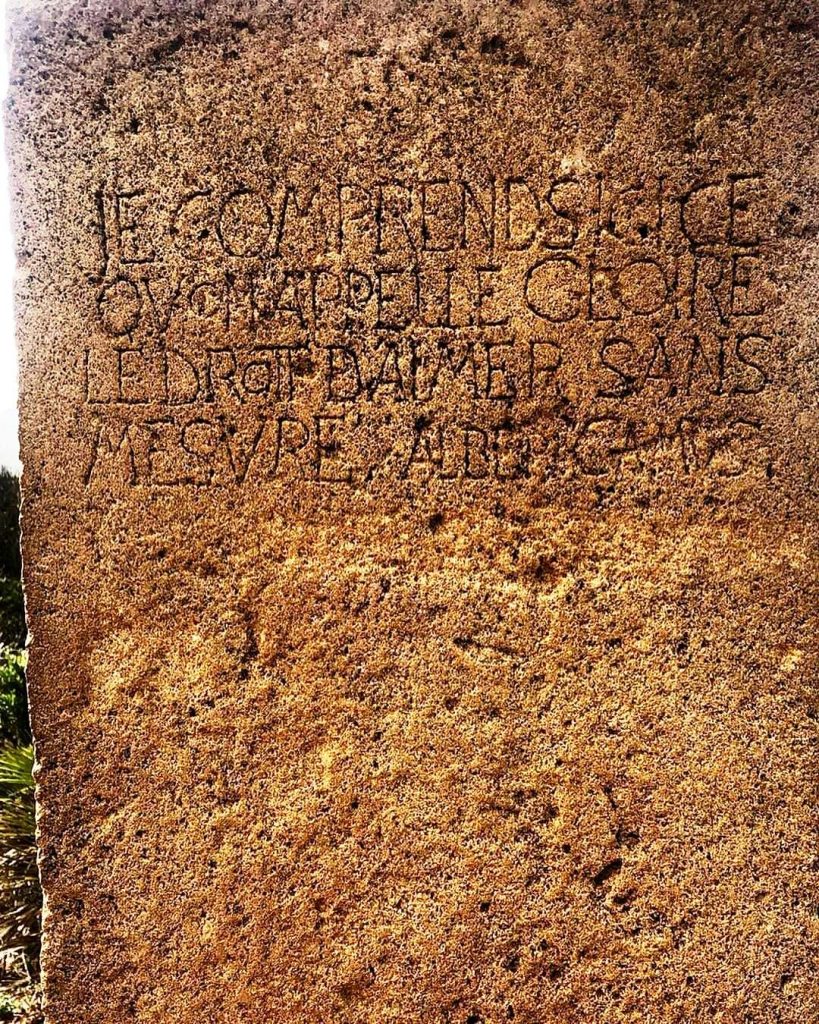 JE COMPRENDS ICI CE
QV'ON APPELLE GLOIRE
LE DROIT D'AIMER SANS
MESVRE, ALBERT CAMVS.